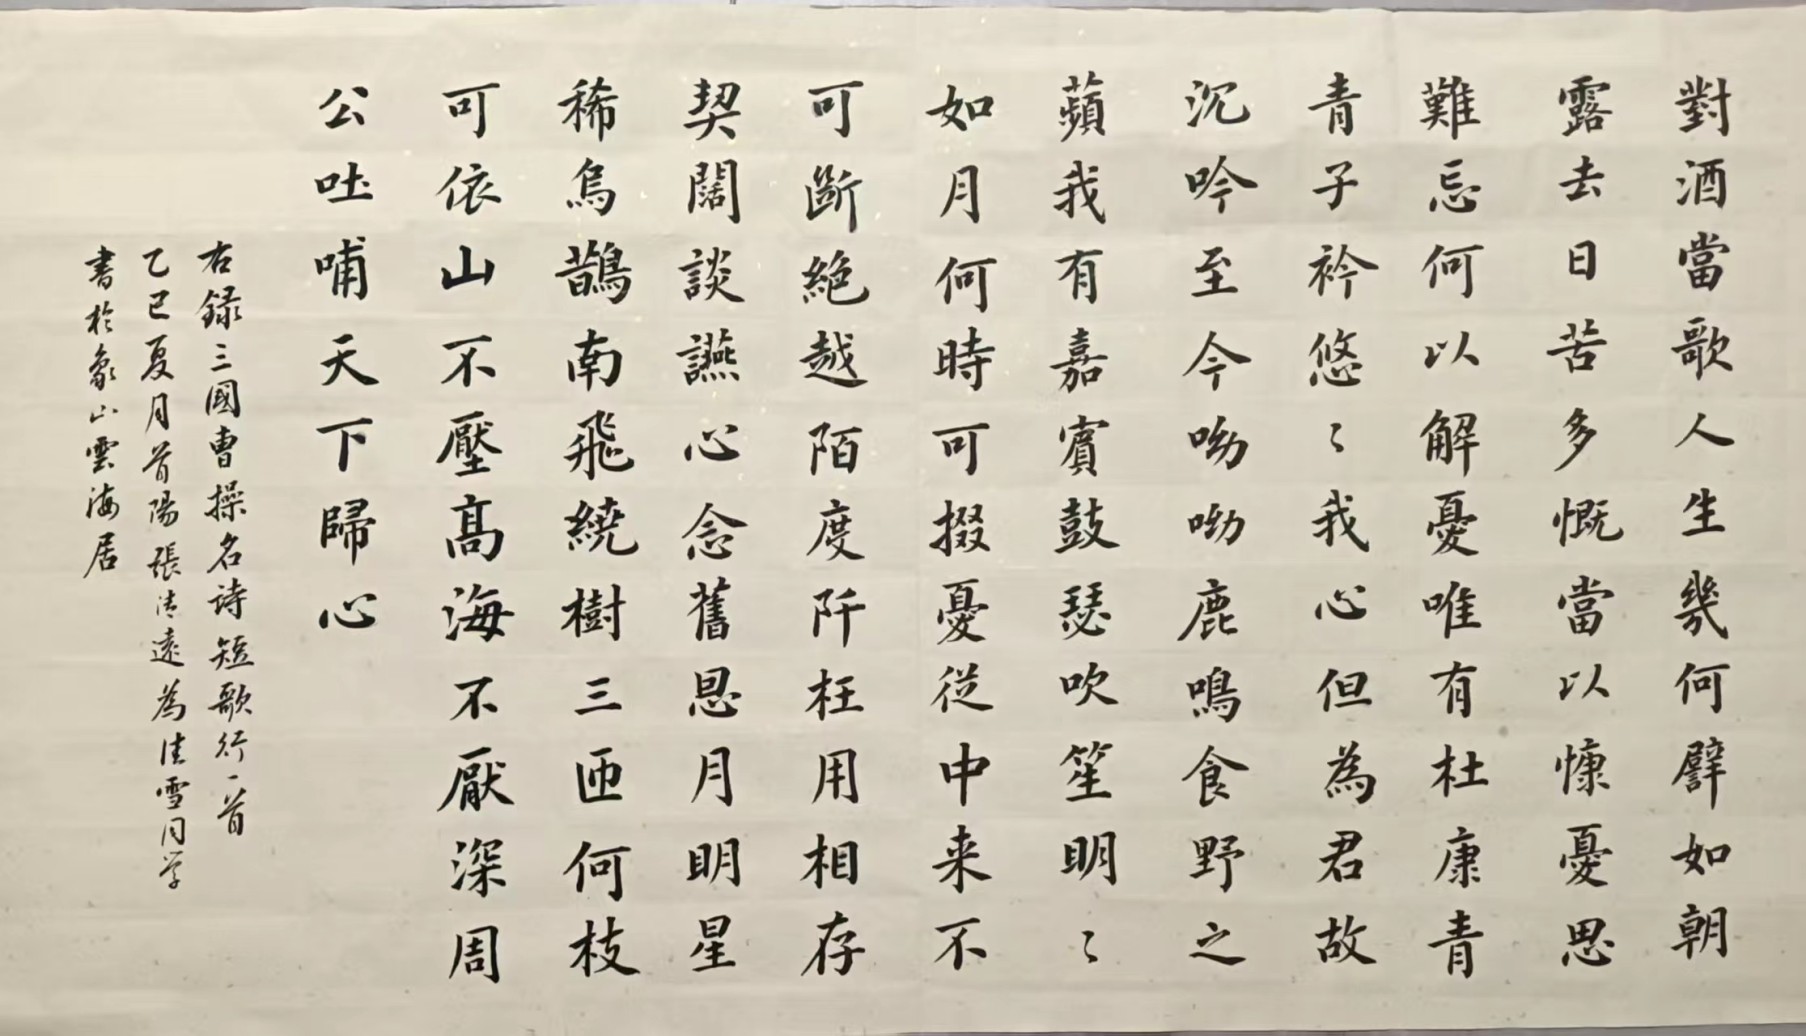 對酒當歌人生幾何譬如朝
露去日苦多慨當以慷憂思
難忘何以解憂唯有杜康青
青子衿悠〻我心但為君故
沉吟至今呦呦鹿鳴食野之
蘋我有嘉賓鼓瑟吹笙明〻
如月何時可掇憂從中来不
可斷絕越陌度阡枉用相存
契闊談讌心念舊恩月明星
稀烏鵲南飛繞樹三匝何枝
可依山不壓高海不厭深周
公吐哺天下歸心
右録三國曹操名詩短歌行一首
乙巳夏月首陽張清遠為佳雪同学
書於象山雲海居